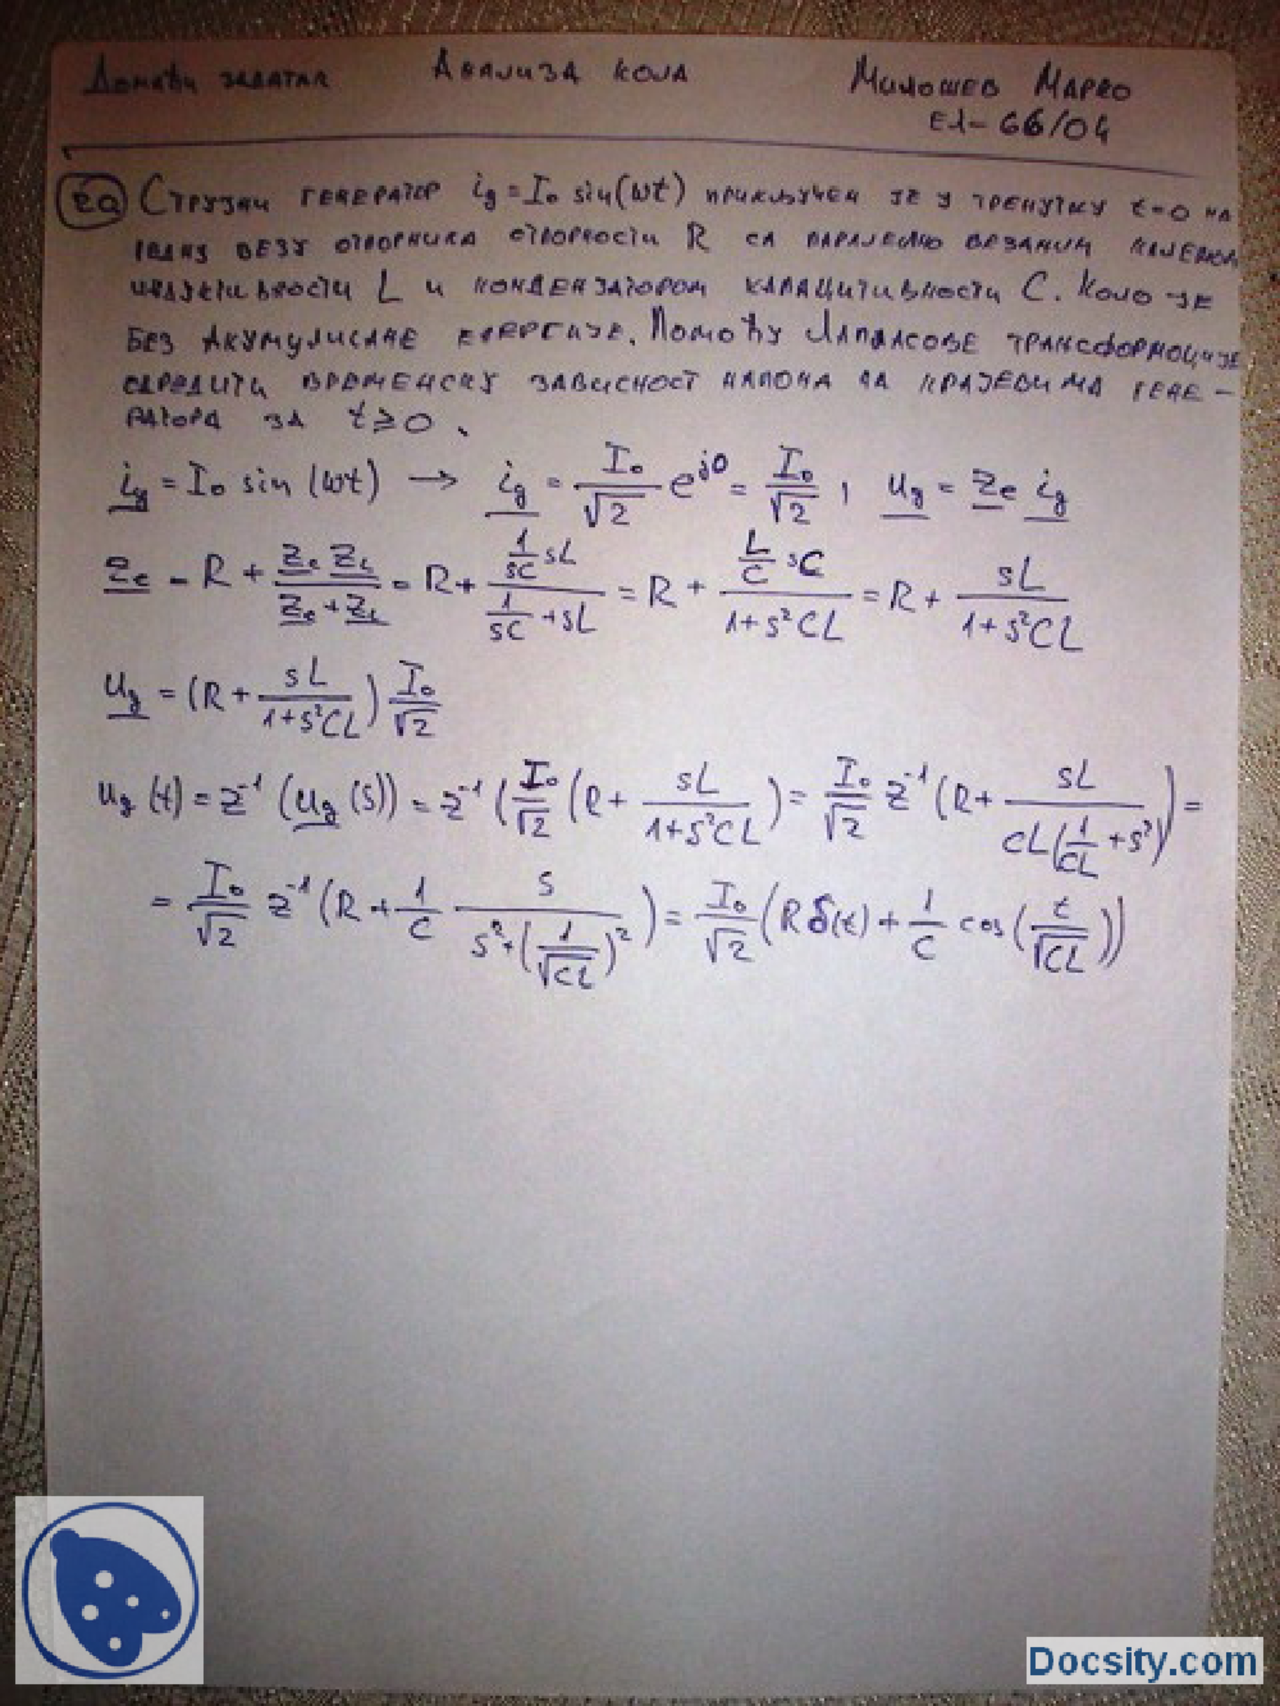 Домаћи задатак Анализа кола Милошев Марко
Е1-66/04
2a Струјни генератор ig = I₀ sin(ωt) прикључен је у тренутку t=0 на
везу отпорника отпорности R са паралелно везаним калемом
индуктивности L и кондензатором капацитивности C. Коло је
без акумулисане енергије. Помоћу Лапласове трансформације
одредити временску зависност напона на крајевима гене-
ратора за t ≥ 0.
ig = I₀ sin(ωt) → ig = I₀/√2 e^{j0} = I₀/√2 , ug = Ze ig
Ze = R + Zc ZL/(Zc + ZL) = R + (1/sC sL)/(1/sC + sL) = R + (L/C sC)/(1+s²CL) = R + sL/(1+s²CL)
ug = (R + sL/(1+s²CL)) I₀/√2
ug(t) = Z⁻¹(ug(s)) = Z⁻¹(I₀/√2 (R + sL/(1+s²CL)) = I₀/√2 Z⁻¹(R + sL/(CL(1/CL + s²))) =
= I₀/√2 Z⁻¹(R + 1/C s/(s² + (1/√CL)²)) = I₀/√2 (Rδ(t) + 1/C cos(t/√CL))
Docsity.com